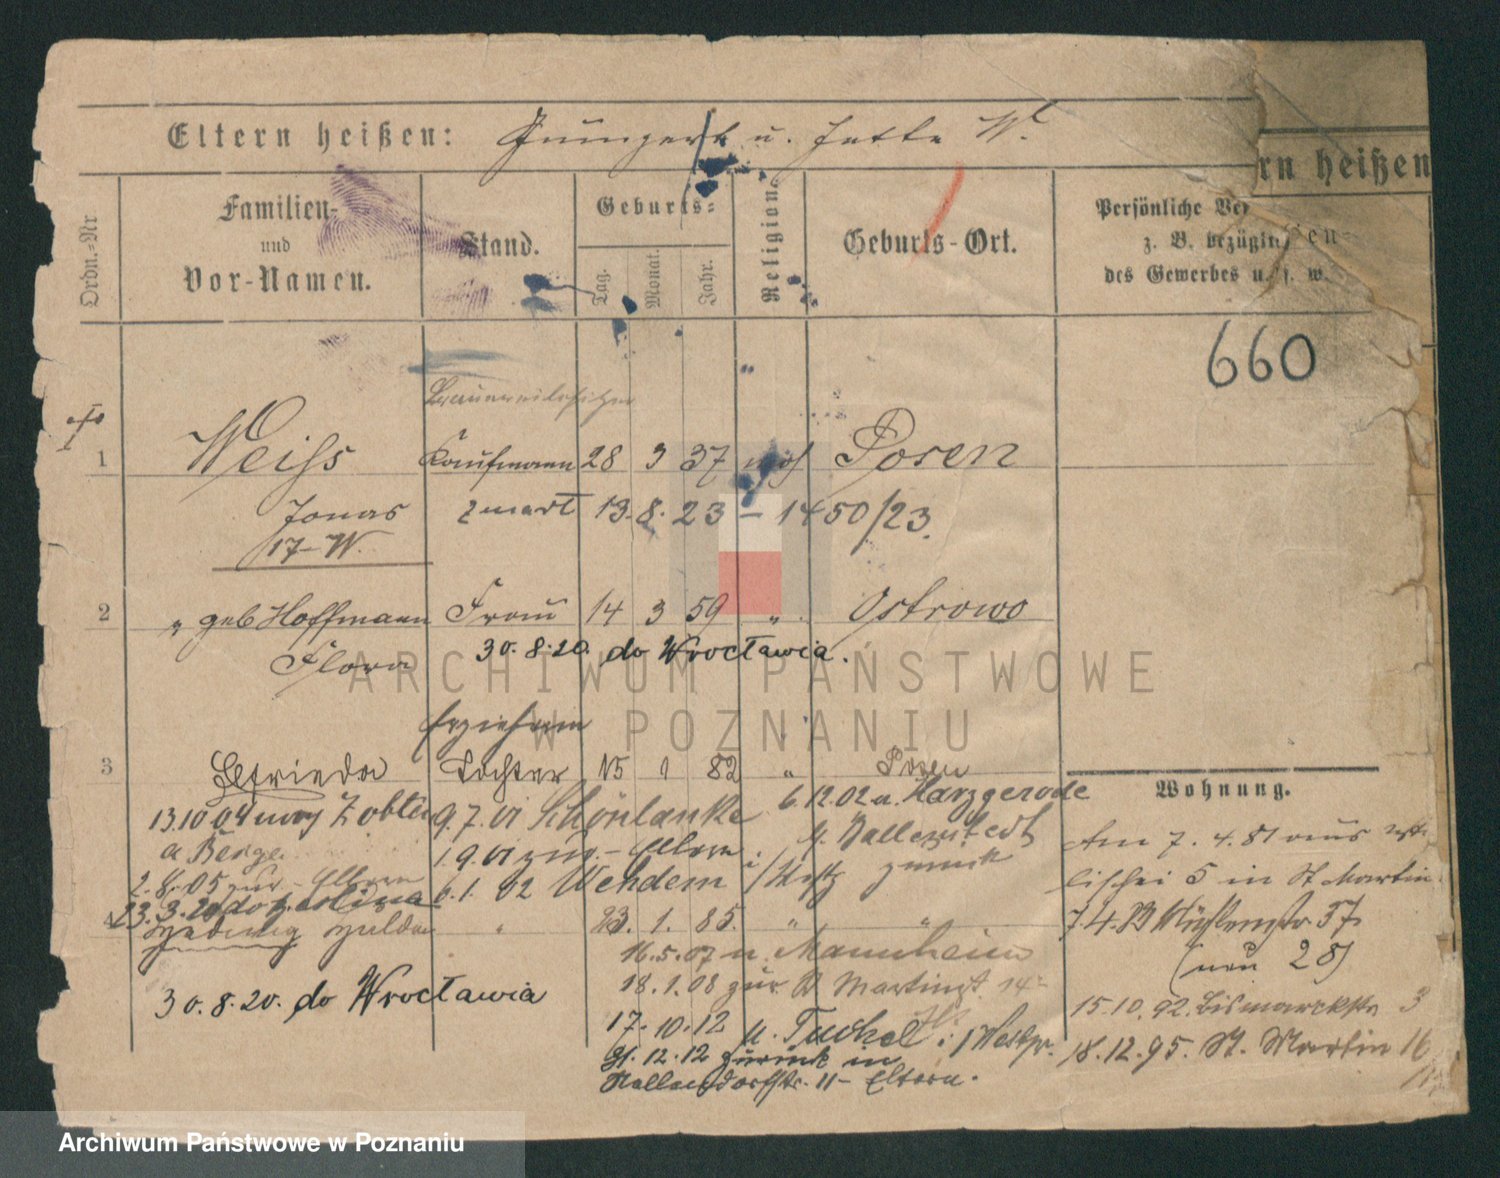 Eltern heißen: u. Jette W.
rn heißen
Ordn.-Nr
Familien-
und
Vor-Namen.
Stand.
Geburts-
Tag.
Monat.
Jahr.
Religion.
Geburts-Ort.
Persönliche Ver
z. B. bezüglich
des Gewerbes u. s. w.
660
Brauereibesitzer
1 Weiss Kaufmann 28 3 37 mos Posen
Jonas zmarł 13. 8. 23 – 1450/23.
17-W.
2 " geb Hoffmann Frau 14 3 59 " Ostrowo
Flora 30. 8. 20. do Wrocławia.
Erzieherin
3 Elfrieda Tochter 15 1 82 " Posen
6.12.02 n. Harzgerode
13.10 04 nach Zobten 9.7.01 Schönlanke
a Berge
1.9.01 zur. – Eltern
zurück
2.8.05 zur – Eltern 6.1.02 Wehdem
23.3.20 do
4 Hedwig Hulda " 23. 1. 85. " "
16.5.07 n. Mannheim
30.8.20. do Wrocławia
18.1.08 zur. St Martinst. 14
17.10.12 n. Tuchel i/Westpr.
12.12 zurück in
11 – Eltern.
Wohnung.
Am 7. 4. 81 aus
5 in St Martin
7.4. Mühlenstr 37
(neu 28)
15.10.92. Bismarckstr 3
18.12.95. St. Martin 16
ARCHIWUM PAŃSTWOWE
W POZNANIU
Archiwum Państwowe w Poznaniu